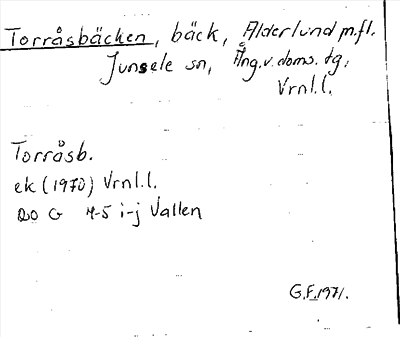 Torråsbäcken, bäck, Alderlund m.fl.
Junsele sn, Ång.v. doms. tg.
Vrnl.l.
Torråsb.
ek (1970) Vrnl.l.
20 G 4-5 i-j Vallen
G.F. 1971.